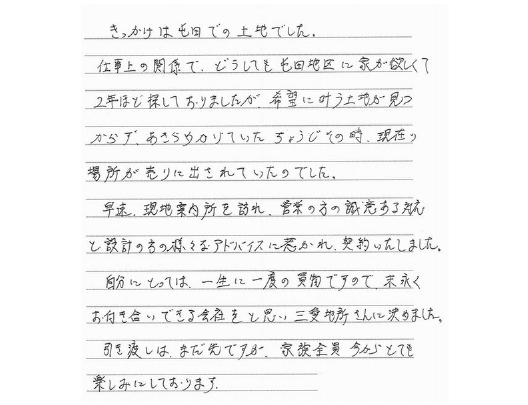 きっかけは屯田での土地でした。
仕事上の関係で、どうしても屯田地区に家が欲しくて
2年ほど探しておりましたが、希望に叶う土地が見つ
からず、あきらめかけていたちょうどその時、現在の
場所が売りに出されていたのでした。
早速、現地案内所を訪れ、営業の方の誠意ある対応
と設計の方の様々なアドバイスに惹かれ、契約いたしました。
自分にとっては、一生に一度の買物ですので、末永く
お付き合いできる会社をと思い三愛地所さんに決めました。
引き渡しは、まだ先ですが、家族全員今からとても
楽しみにしております。